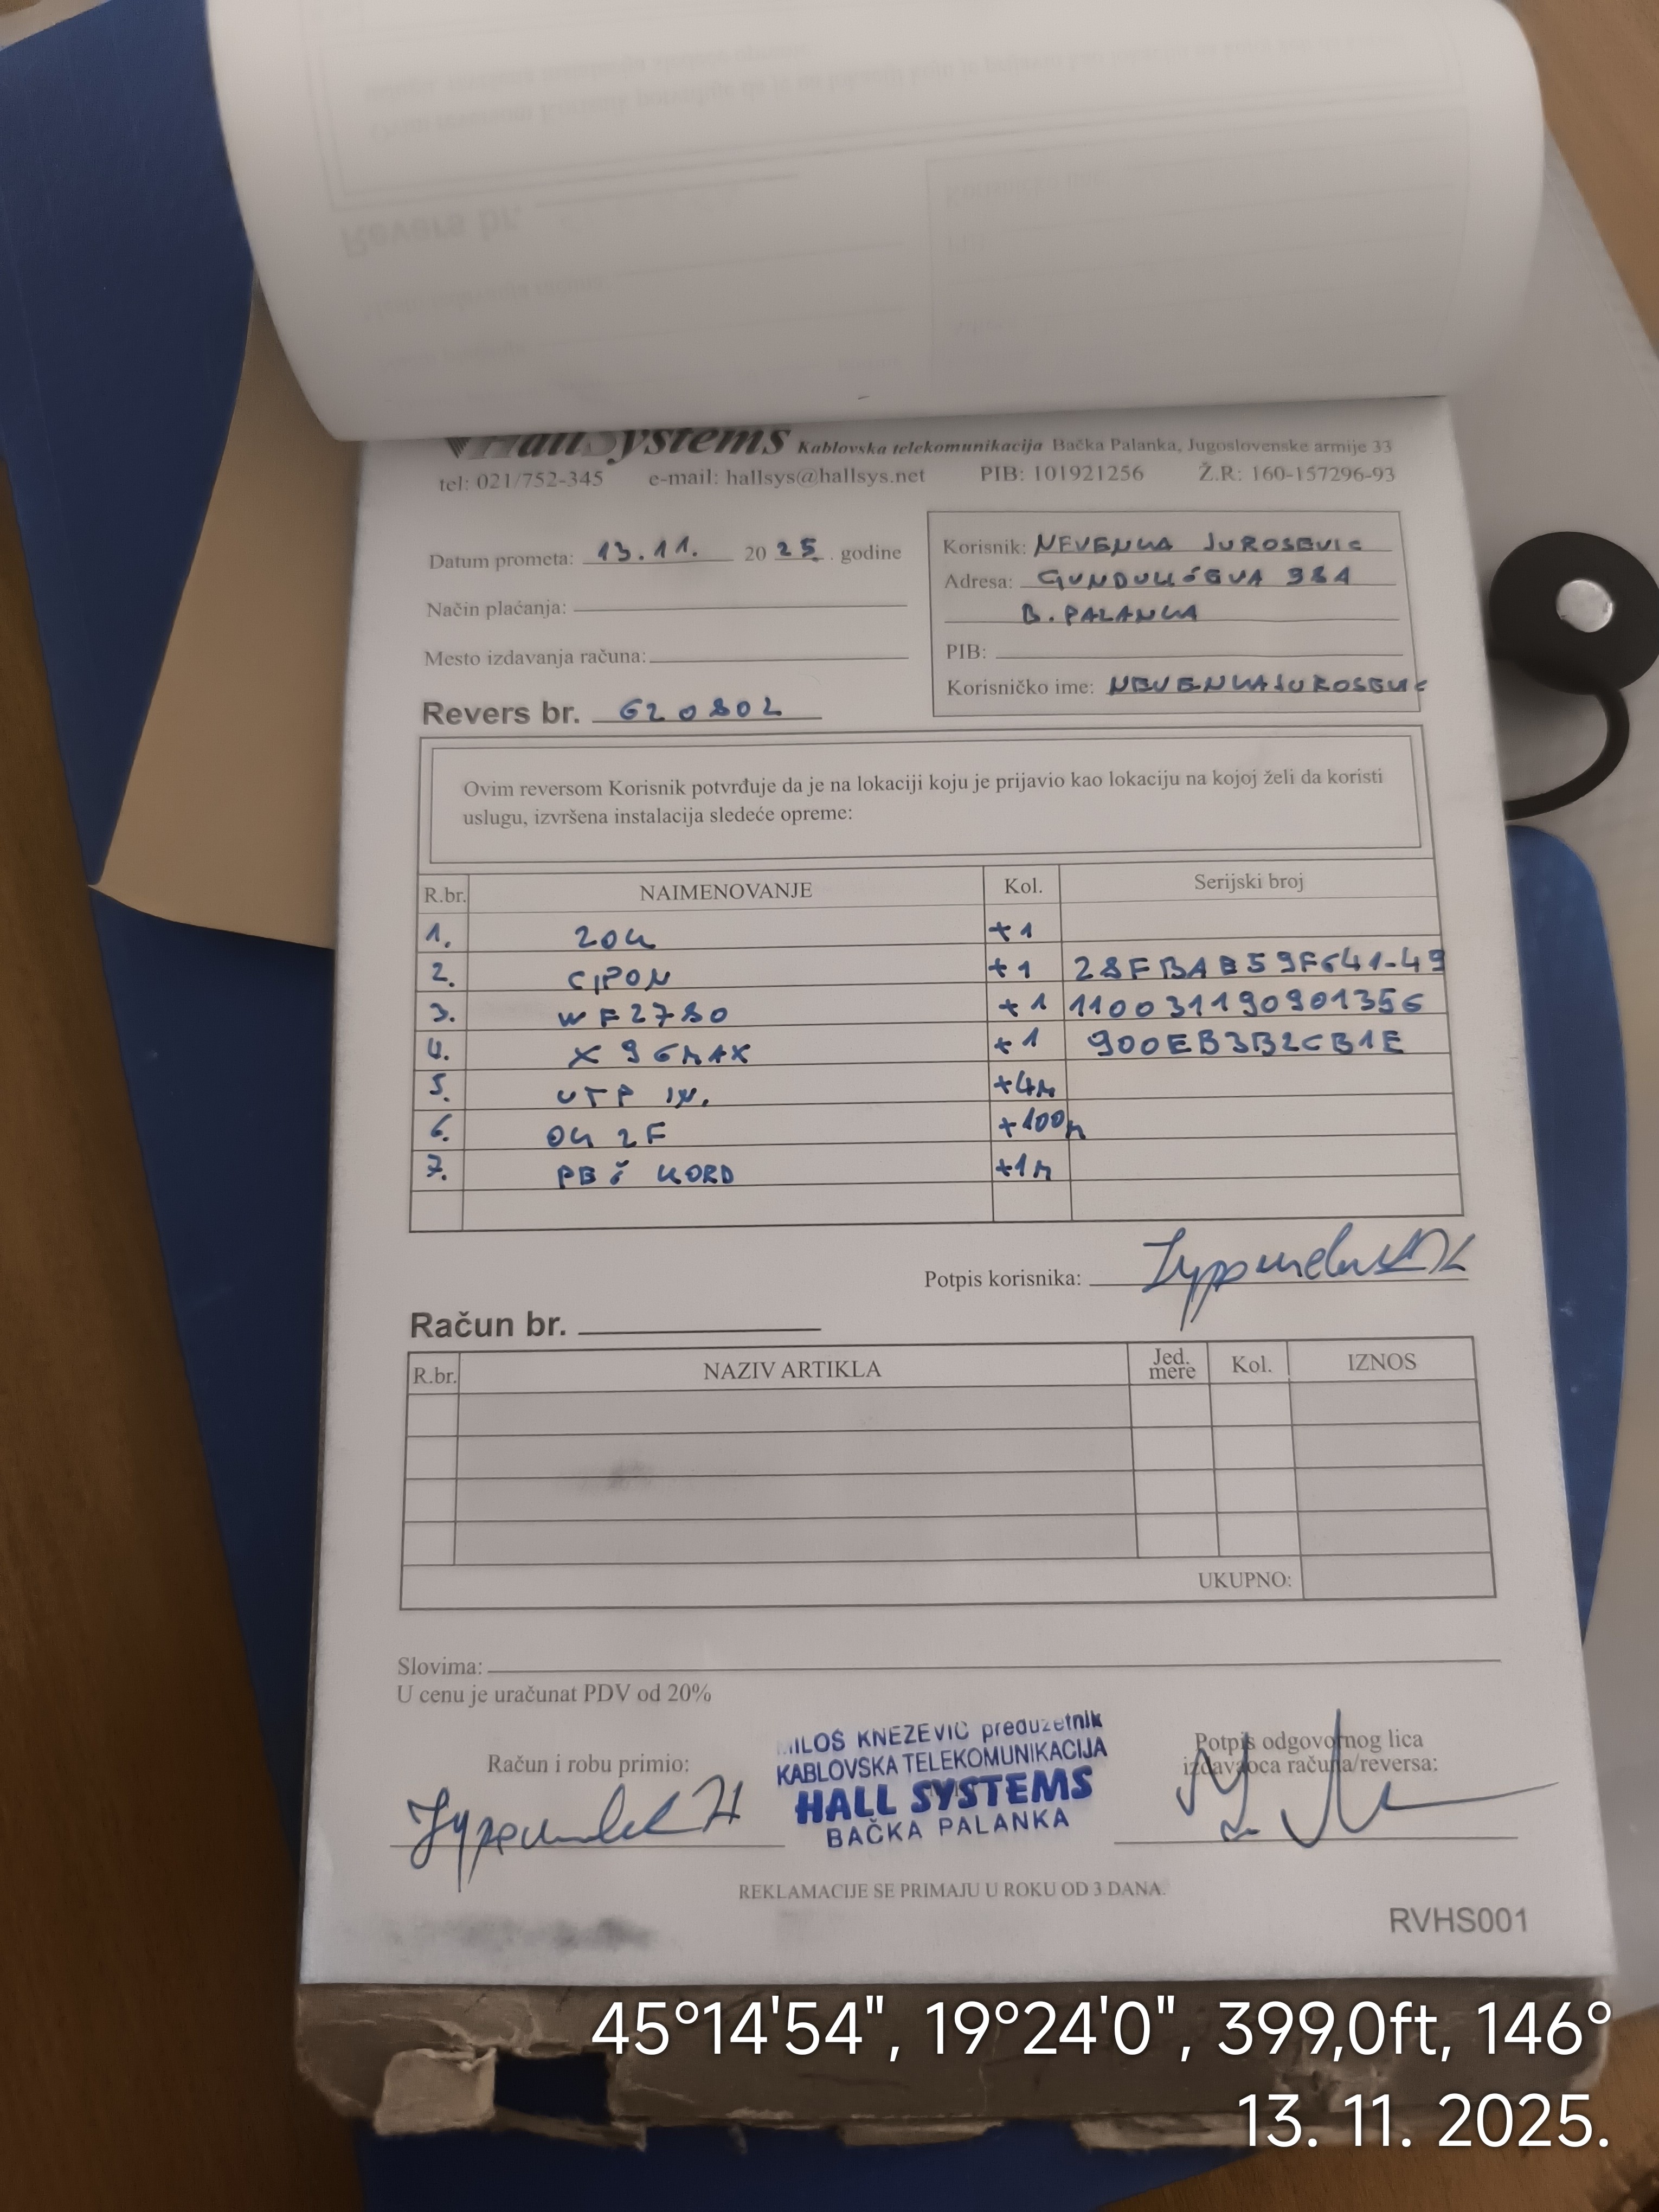 HallSystems Kablovska telekomunikacija Bačka Palanka, Jugoslovenske armije 33
tel: 021/752-345 e-mail: hallsys@hallsys.net PIB: 101921256 Ž.R: 160-157296-93
Datum prometa: 13.11. 2025. godine
Način plaćanja:
Mesto izdavanja računa:
Korisnik: NEVENKA JUROSEVIC
Adresa: GUNDULIĆEVA 98A
B. PALANKA
PIB:
Korisničko ime: NEVENKAJUROSEVIC
Revers br. 620802
Ovim reversom Korisnik potvrđuje da je na lokaciji koju je prijavio kao lokaciju na kojoj želi da koristi
uslugu, izvršena instalacija sledeće opreme:
R.br. NAIMENOVANJE Kol. Serijski broj
1. ZOK +1
2. GPON +1 28FBAB59F641-49
3. WF2780 +1 110031190901356
4. X96MAX +1 900EB3B2CB1E
5. UTP IN. +4m
6. OK 2F +100m
7. PEČ KORD +1m
Potpis korisnika:
Račun br.
R.br. NAZIV ARTIKLA Jed. mere Kol. IZNOS
UKUPNO:
Slovima:
U cenu je uračunat PDV od 20%
Račun i robu primio:
MILOŠ KNEŽEVIĆ preduzetnik
KABLOVSKA TELEKOMUNIKACIJA
HALL SYSTEMS
BAČKA PALANKA
Potpis odgovornog lica
izdavaoca računa/reversa:
REKLAMACIJE SE PRIMAJU U ROKU OD 3 DANA.
RVHS001
45°14'54", 19°24'0", 399,0ft, 146°
13. 11. 2025.